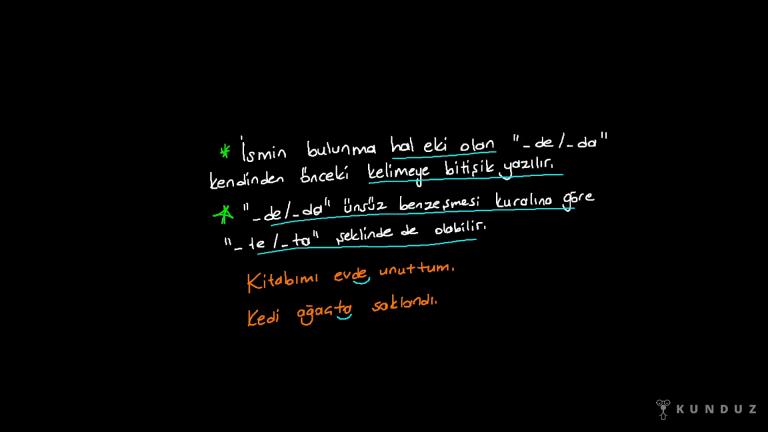 * İsmin bulunma hal eki olan "-de/-da"
kendinden önceki kelimeye bitişik yazılır.
* "-de/-da" ünsüz benzeşmesi kuralına göre
"-te/-ta" şeklinde de olabilir.
Kitabımı evde unuttum.
Kedi ağaçta saklandı.
KUNDUZ